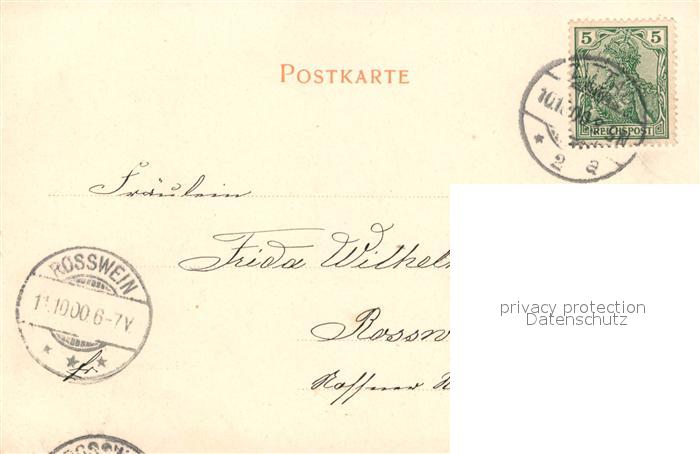 POSTKARTE
5 5
REICHSPOST
2 a
Fräulein
Frida Wilhel
ROSSWEIN
11.10.00.6-7V.
Rossw
privacy protection
Datenschutz